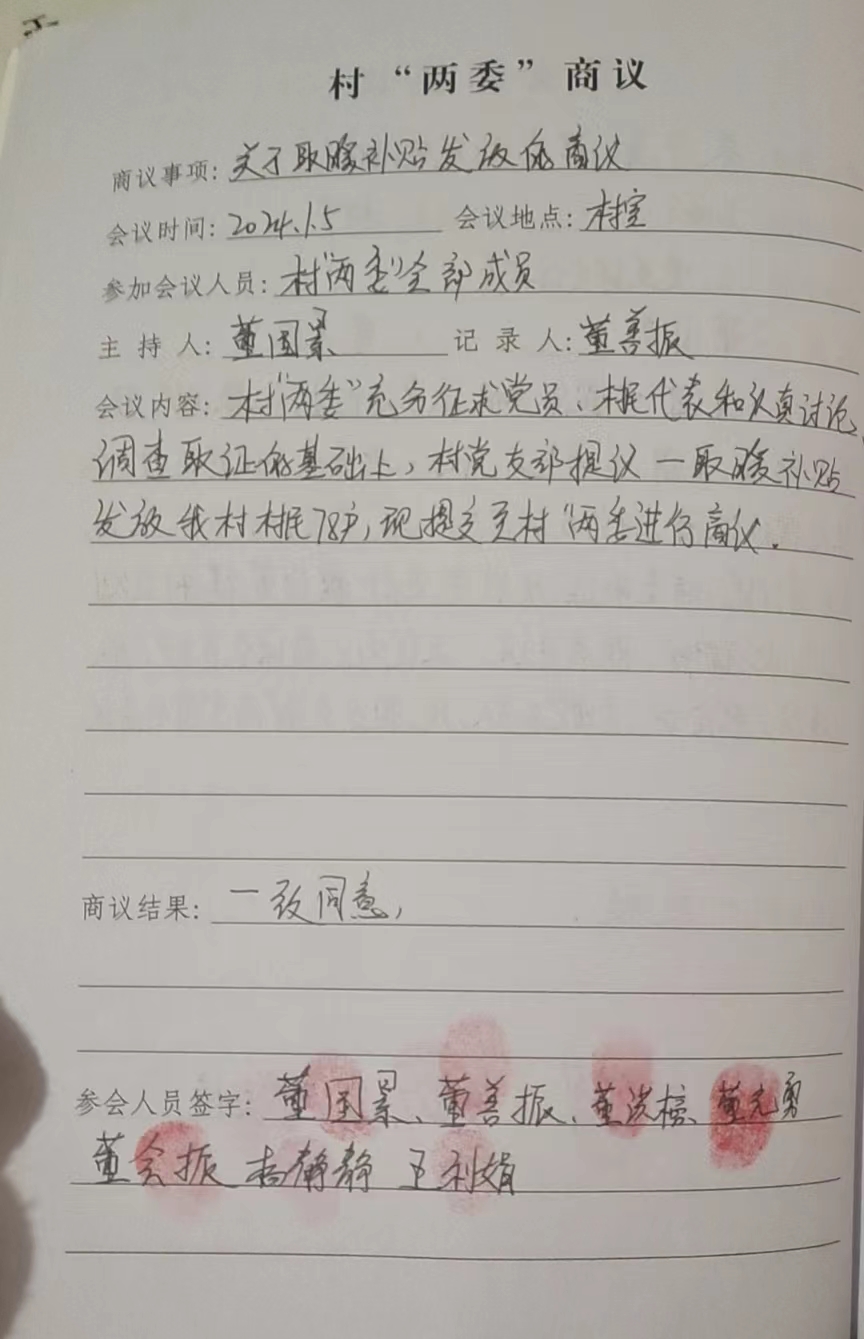 村“两委”商议
商议事项：关于取暖补贴发放的商议
会议时间：2024.1.5 会议地点：村室
参加会议人员：村“两委”全部成员
主持人：董国景 记录人：董善振
会议内容：村“两委”充分征求党员、村民代表和认真讨论、
调查取证的基础上，村党支部提议一取暖补贴
发放我村村民78户，现提交至村“两委进行商议.
商议结果：一致同意，
参会人员签字：董国景、董善振、董洪榜、董元勇
董会振 杨静静 王利娟